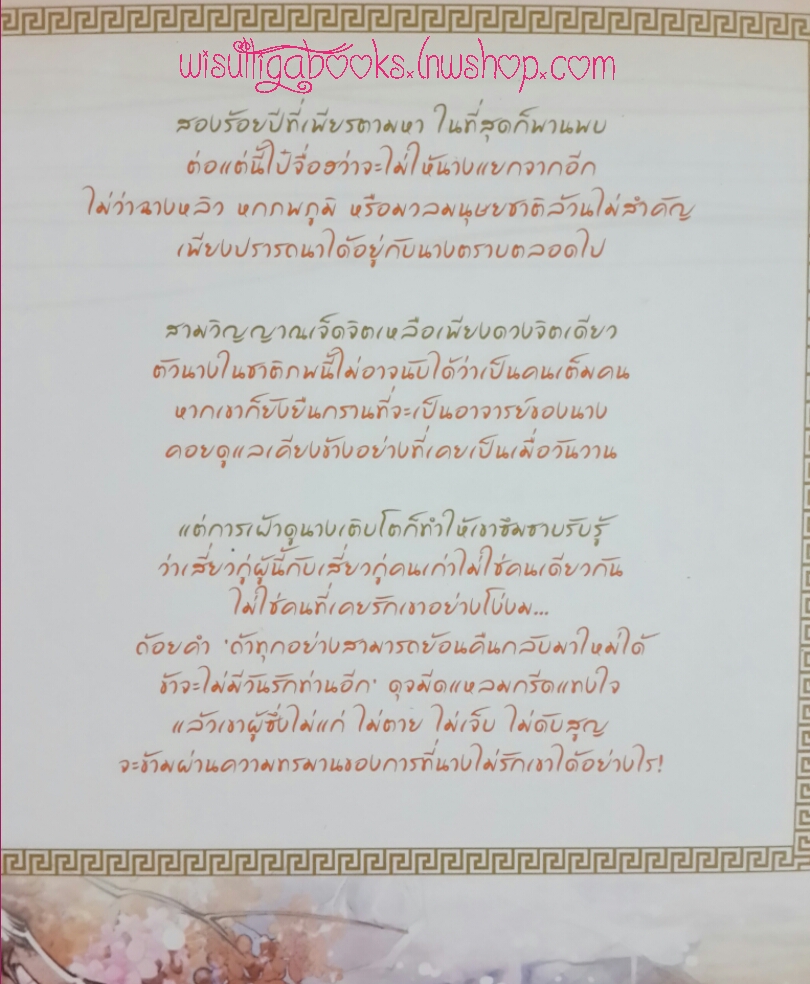 wisutligabooks.lnwshop.com
สองร้อยปีที่เพียรตามหา ในที่สุดก็พานพบ
ต่อแต่นี้ไป๋จื่อฮว่าจะไม่ให้นางแยกจากอีก
ไม่ว่าฉางหลิว หกภพภูมิ หรือมวลมนุษยชาติล้วนไม่สำคัญ
เพียงปรารถนาได้อยู่กับนางตราบตลอดไป
สามวิญญาณเจ็ดจิตเหลือเพียงดวงจิตเดียว
ตัวนางในชาติภพนี้ไม่อาจนับได้ว่าเป็นคนเต็มคน
หากเขาก็ยังยืนกรานที่จะเป็นอาจารย์ของนาง
คอยดูแลเคียงข้างอย่างที่เคยเป็นเมื่อวันวาน
แต่การเฝ้าดูนางเติบโตก็ทำให้เขาซึมซาบรับรู้
ว่าเสี่ยวกู่ผู้นี้กับเสี่ยวกู่คนเก่าไม่ใช่คนเดียวกัน
ไม่ใช่คนที่เคยรักเขาอย่างโง่งม...
ถ้อยคำ 'ถ้าทุกอย่างสามารถย้อนคืนกลับมาใหม่ได้
ข้าจะไม่มีวันรักท่านอีก' ดุจมีดแหลมกรีดแทงใจ
แล้วเขาผู้ซึ่งไม่แก่ ไม่ตาย ไม่เจ็บ ไม่ดับสูญ
จะข้ามผ่านความทรมานของการที่นางไม่รักเขาได้อย่างไร!